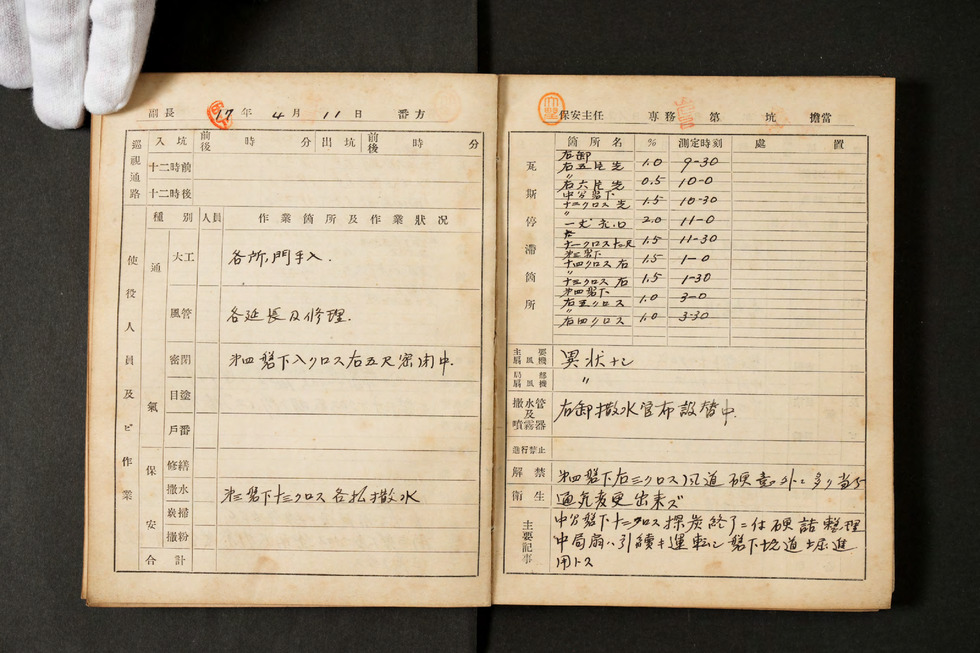 副長 17年4月11日 番方
巡視通路
入坑 前後 時 分 出坑 前後 時 分
十二時前
十二時後
使役人員及ビ作業
種別 人員 作業箇所及作業状況
通氣
大工 各所門手入.
風管 各延長及修理.
密閉 第四盤下入クロス右五尺密閉中.
目塗
戸番
保安
修繕
撒水 第三盤下十三クロス各払撒水
炭掃
撒粉
合計
保安主任 専務 第 坑 擔當
瓦斯停滞箇所
箇所名 % 測定時刻 處置
右卸
右五片先 1.0 9-30
〃
右六片先 0.5 10-0
中分盤下
十二クロス先 1.5 10-30
〃
2.0 11-0
1.5 11-30
第三盤下
十四クロス右 1.5 1-0
〃
十三クロス右 1.5 1-30
第四盤下
右五クロス 1.0 3-0
〃
右四クロス 1.0 3-30
主要扇風機 異状ナシ
局部扇風機 〃
撒水管及噴霧器 右卸撒水管布設替中
進行禁止
解禁 第四盤下右三クロス風道硬
衛生 通気変更出来ズ
主要記事 中分盤下十二クロス採炭終了ニ付硬詰整理
中局扇ハ引続キ運転シ盤下坑道掘進
用トス